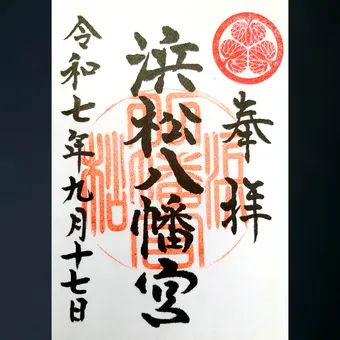 奉拝
浜松八幡宮
令和七年九月十七日